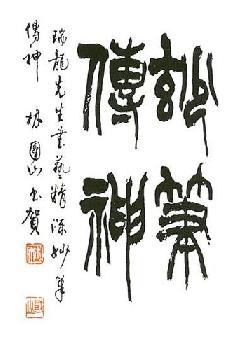 妙筆
傳神
瑞龍先生書藝精深妙筆
傳神 山書賀